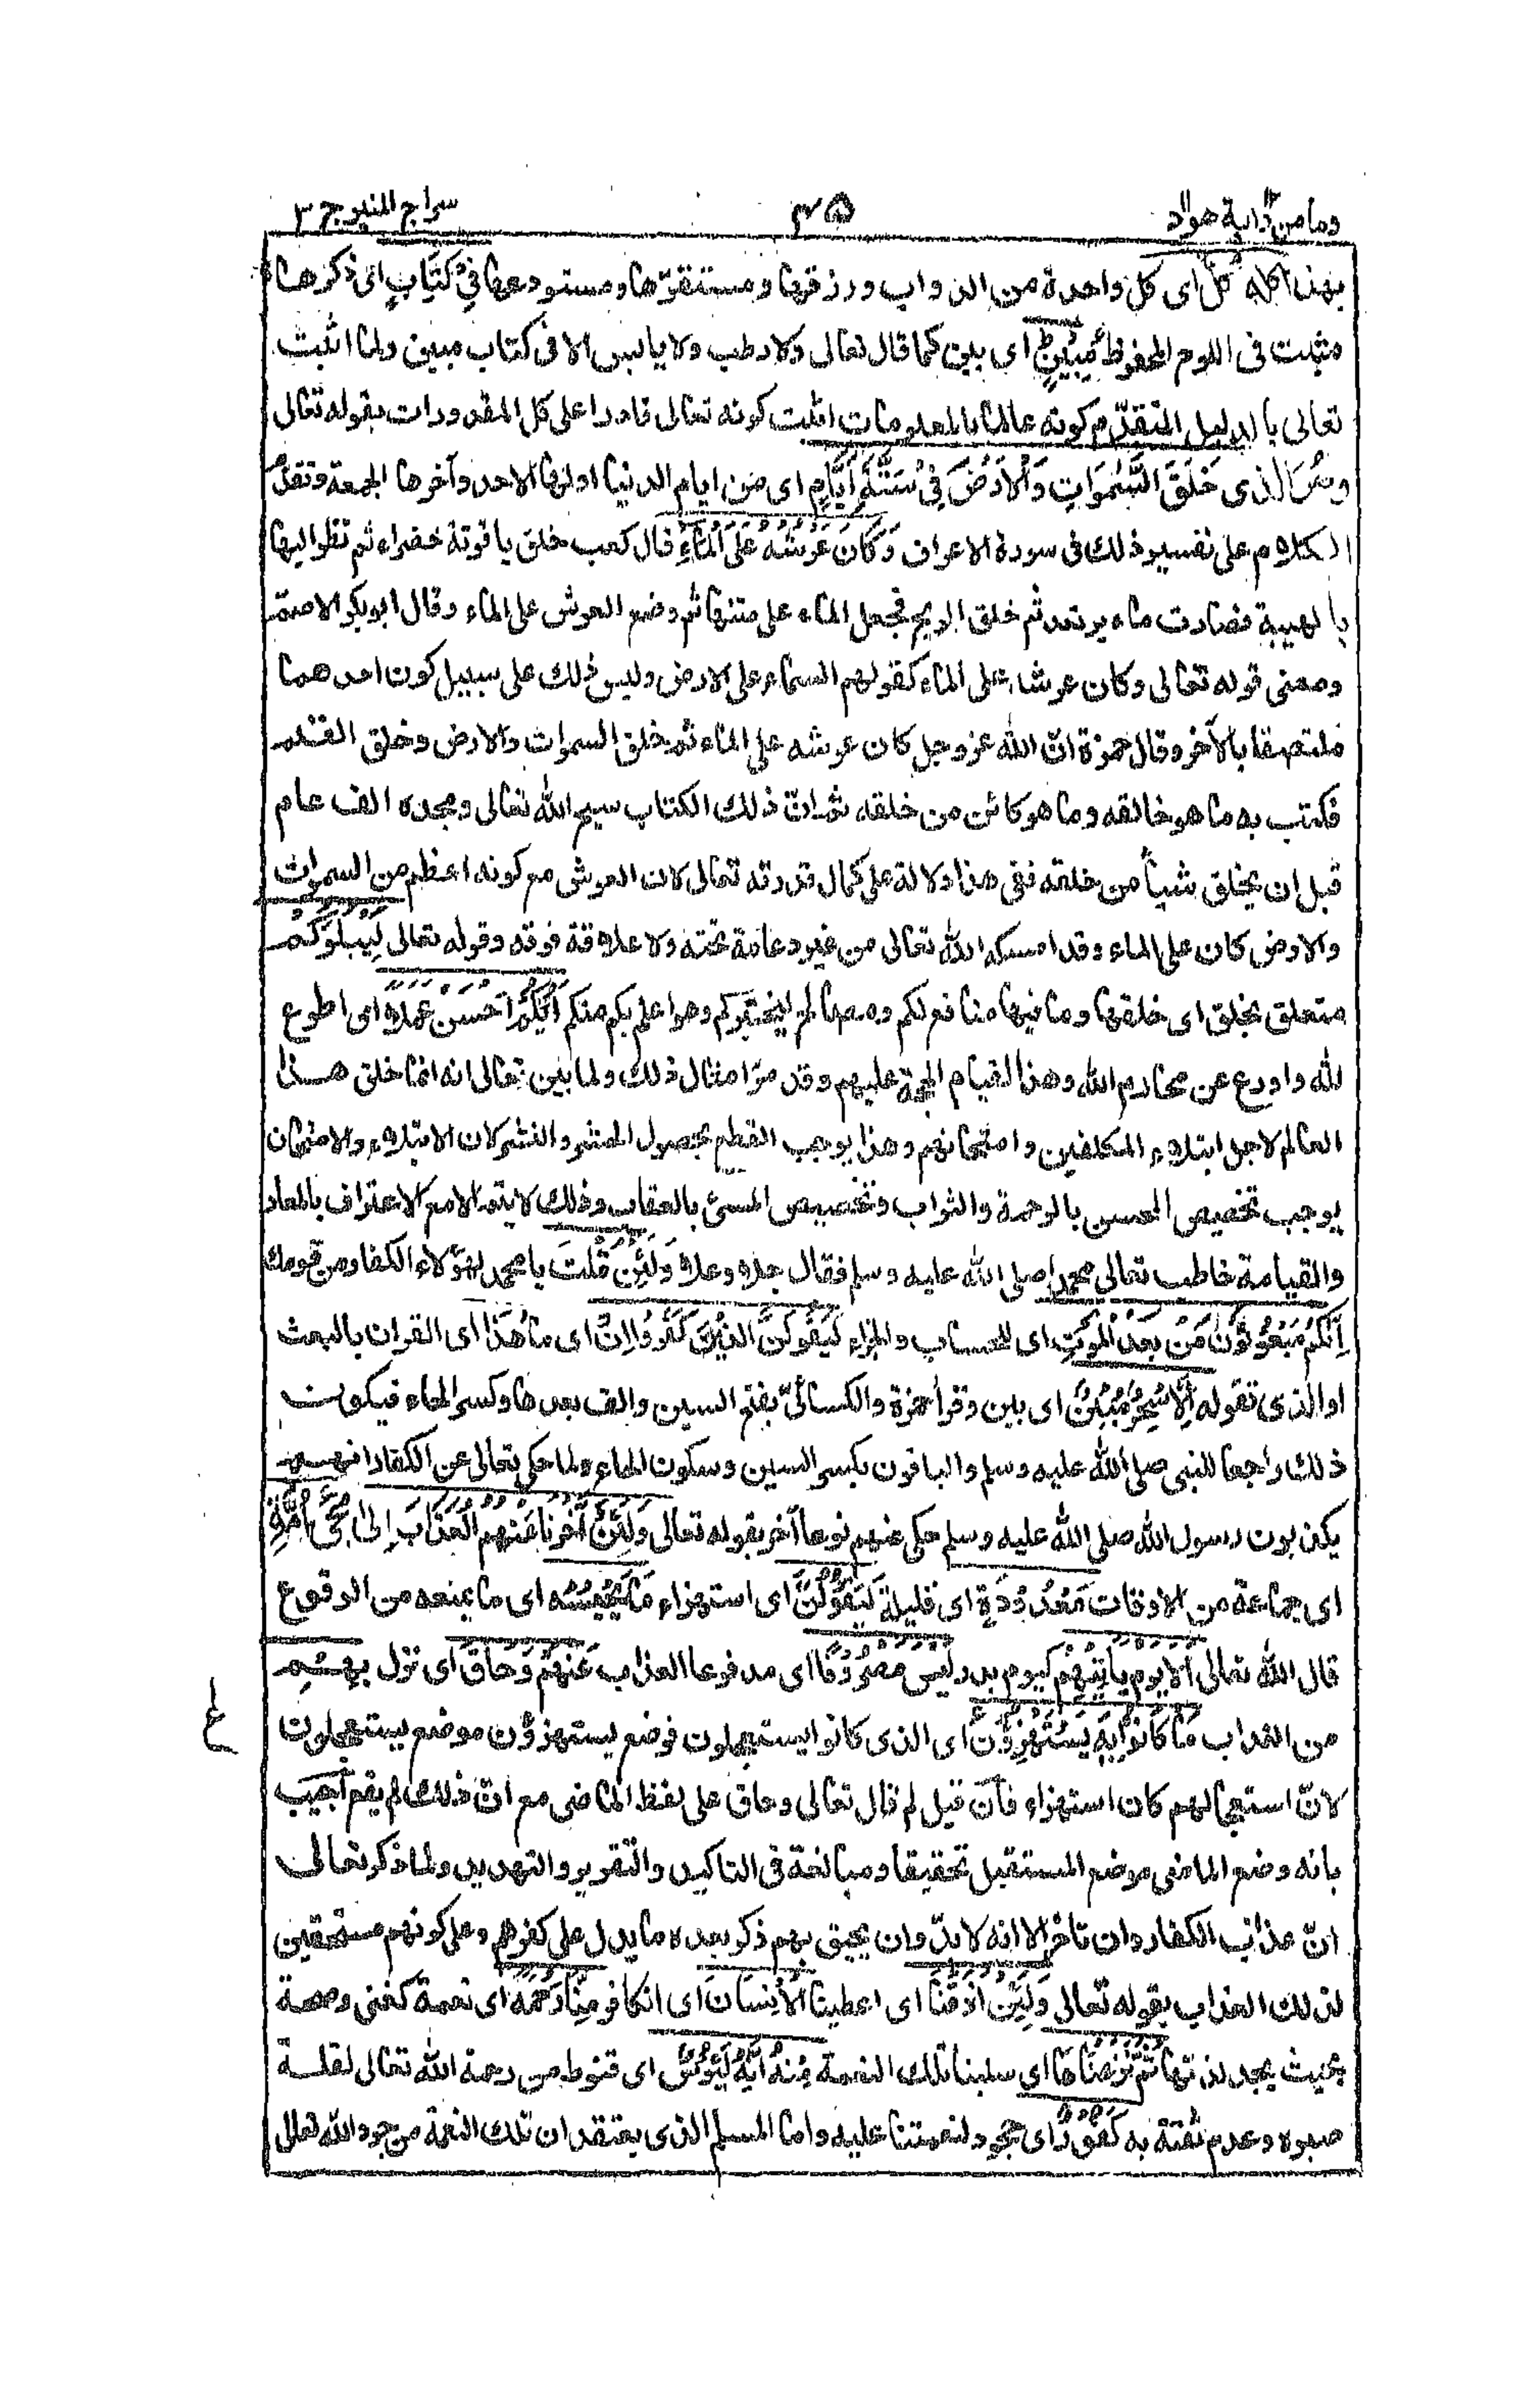 وما من دابة هود
٤٥
سراج المنير ج ٣
بهذا كله كُلٌّ اى كل واحدة من الدواب ورزقها ومستقرّها ومستودعها فِيْ كِتَابٍ اى ذكرها
مثبت فى اللوح المحفوظ مُّبِيْنٍ اى بين كما قال تعالى ولا رطب ولا يابس الا فى كتاب مبين ولما اثبت
تعالى بالدليل المتقدّم كونه عالما بالمعلومات اثبت كونه تعالى قادرا على كل المقدورات بقوله تعالى
وهُوَ الَّذى خَلَقَ السَّمٰوَاتِ وَالْاَرْضَ فِيْ سِتَّةِ اَيَّامٍ اى من ايام الدنيا اولها الاحد وآخرها الجمعة وتقدّم
الكلام على تفسير ذلك فى سورة الاعراف وَكَانَ عَرْشُهُ عَلَى الْمَاءِ قال كعب خلق ياقوتة خضراء ثم نظر اليها
بالهيبة فصارت ماء يرتعد ثم خلق الريح فجعل الماء على متنها ثم وضع العرش على الماء وقال ابو بكر الاصمّ
ومعنى قوله تعالى وكان عرشه على الماء كقولهم السماء على الارض وليس ذلك على سبيل كون احدهما
ملتصقا بالآخر وقال حمزة انّ الله عز وجل كان عرشه على الماء ثم خلق السموات والارض وخلق القلم
فكتب به ما هو خالقه وما هو كائن من خلقه ثم انّ ذلك الكتاب سبح الله تعالى ومجده الف عام
قبل ان يخلق شيأ من خلقه ففى هذا دلالة على كمال قدرته تعالى لان العرش مع كونه اعظم من السموات
والارض كان على الماء وقد امسكه الله تعالى من غير دعامة تحته ولا علاقة فوقه وقوله تعالى لِيَبْلُوَكُمْ
متعلق بخلق اى خلقها وما فيها منافع لكم ومصالح ليختبركم وهو اعلم بكم منكم اَيُّكُمْ اَحْسَنُ عَمَلًا اى اطوع
لله واورع عن محارم الله وهذا لقيام الحجة عليهم وقد مرّ امثال ذلك ولما بين تعالى انه انما خلق هذا
العالم لاجل ابتلاء المكلفين وامتحانهم وهذا يوجب القطع بحصول الحشر والنشر لان الابتلاء والامتحان
يوجب تخصيص المحسن بالرحمة والثواب وتخصيص المسئ بالعقاب وذلك لا يتم الا مع الاعتراف بالمعاد
والقيامة خاطب تعالى محمدا صلى الله عليه وسلم فقال جلا وعلا وَلَئِنْ قُلْتَ يا محمد لهؤلاء الكفار من قومك
اِنَّكُمْ مَّبْعُوْثُوْنَ مِنْ بَعْدِ الْمَوْتِ اى للحساب والجزاء لَيَقُوْلَنَّ الَّذِيْنَ كَفَرُوْا اِنْ اى ما هٰذَا اى القران بالبعث
او الذى تقوله اِلَّا سِحْرٌ مُّبِيْنٌ اى بين وقرأ حمزة والكسائىّ بفتح السين والف بعدها وكسر الحاء فيكون
ذلك راجعا للنبى صلى الله عليه وسلم والباقون بكسر السين وسكون الحاء ولما حكى تعالى عن الكفار انهم
يكذبون رسول الله صلى الله عليه وسلم حكى عنهم نوعا آخر بقوله تعالى وَلَئِنْ اَخَّرْنَا عَنْهُمُ الْعَذَابَ اِلٰى مَجِئِ اُمَّةٍ
اى جماعة من الاوقات مَّعْدُوْدَةٍ اى قليلة لَيَقُوْلُنَّ اى استهزاء مَا يَحْبِسُه اى ما يمنعه من الوقوع
قال الله تعالى اَلَا يَوْمَ يَاْتِيْهِمْ كيوم بدر لَيْسَ مَصْرُوْفًا اى مدفوعا العذاب عَنْهُمْ وَحَاقَ اى نزل بِهِمْ
من العذاب مَّا كَانُوْا بِهٖ يَسْتَهْزِءُوْنَ اى الذى كانوا يستعجلون فوضع يستهزؤن موضع يستعجلون
ع
لانّ استعجالهم كان استهزاء فان قيل لم قال تعالى وحاق على لفظ الماضى مع انّ ذلك لم يقع اجيب
بانه وضع الماضى موضع المستقبل تحقيقا ومبالغة فى التاكيد والتقرير والتهديد ولما ذكر تعالى
انّ عذاب الكفار وان تاخر الا انه لا بدّ وان يحيق بهم ذكر بعده ما يدل على كفرهم وعلى كونهم مستحقين
لذلك العذاب بقوله تعالى وَلَئِنْ اَذَقْنَا اى اعطينا الْاِنْسَانَ اى الكافر مِنَّا رَحْمَةً اى نعمة كغنى وصحة
بحيث يجد لذتها ثُمَّ نَزَعْنَاهَا اى سلبنا تلك النعمة مِنْهُ اِنَّهُ لَيَئُوْسٌ اى قنوط من رحمة الله تعالى لقلة
صبره وعدم ثقته به كَفُوْرٌ اى جحود لنعمتنا عليه واما المسلم الذى يعتقد ان تلك النعمة من جود الله تعالى